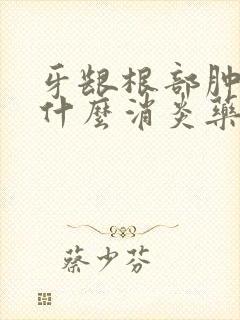 牙龈根部肿
什麼消炎藥
蔡少芬